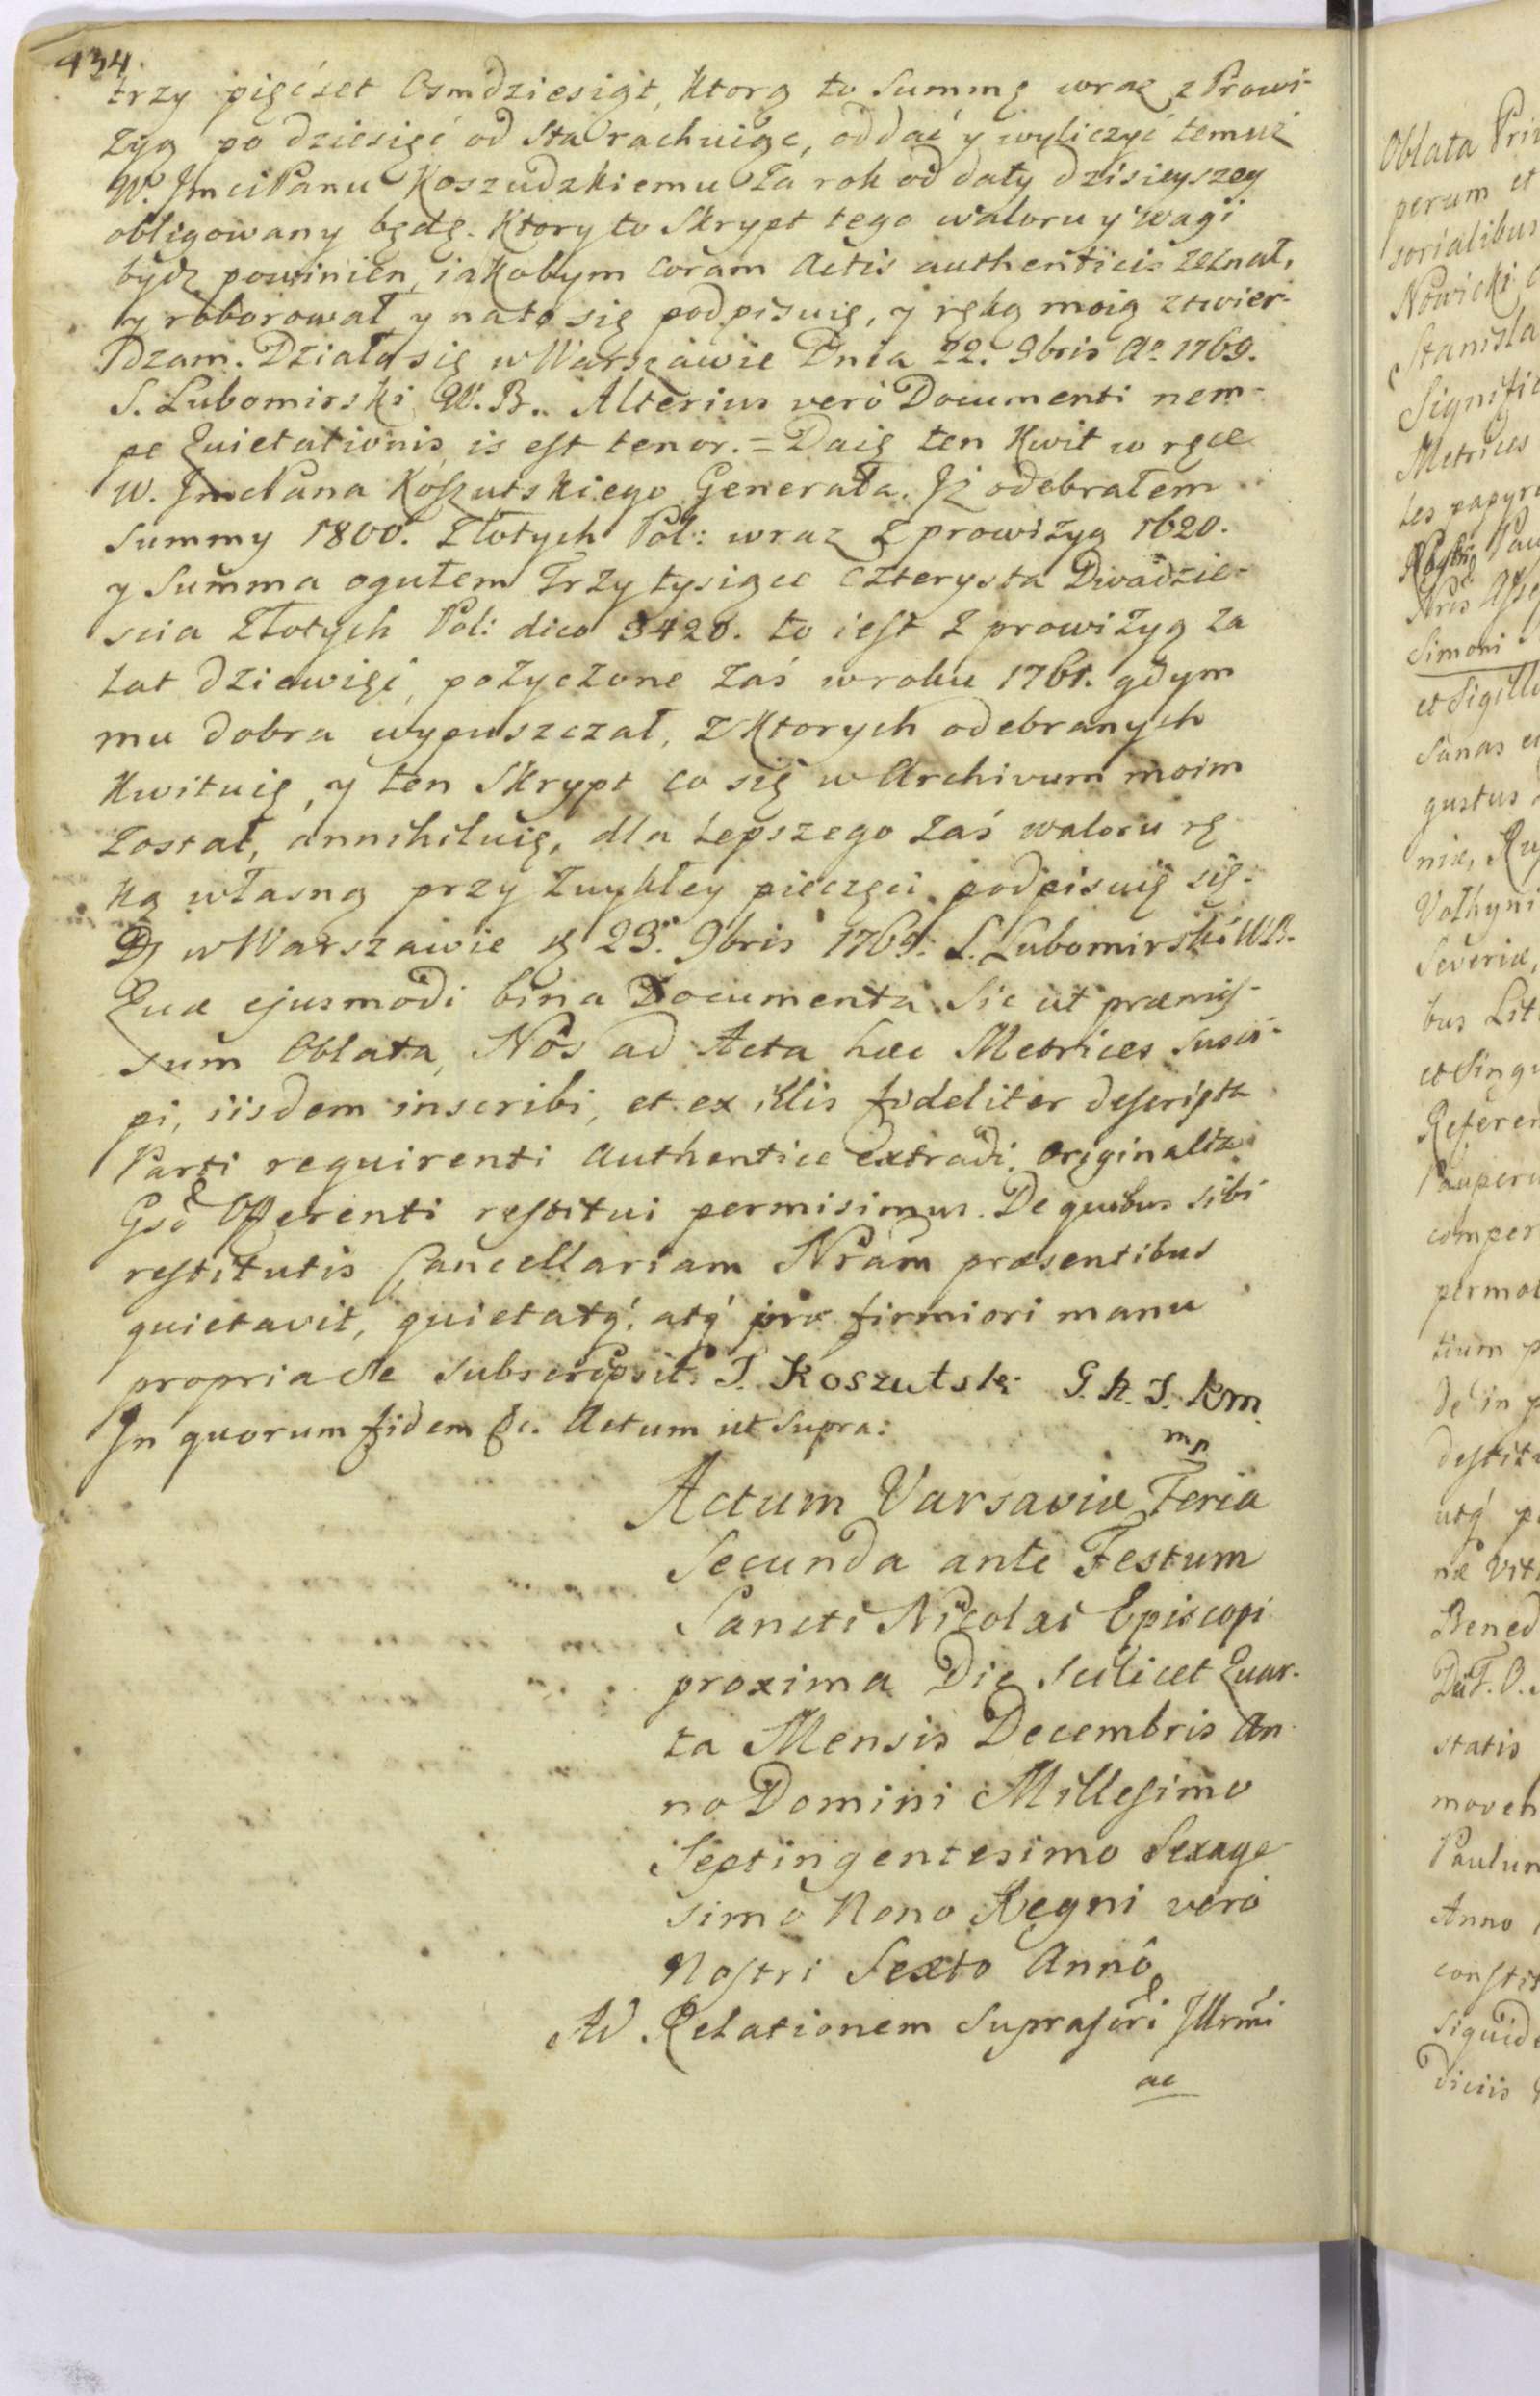 434.
trzy pięćset Osmdziesiąt, Ktorą to Summę wraz z Prowi-
zyą po dziesięć od Sta rachuiąc, oddać y wyliczyć temuż
W. Jmci Panu Koszudzkiemu za rok od daty dzisieyszey
obligowany będę. Ktory to Skrypt tego waloru y wagi
bydz powinien, iakobym coram Actis authenticis zeznał,
y roborował y nato się podpisuię, y ręką moią ztwier-
dzam. Działo się w Warszawie Dnia 22. 9bris Ao 1769.
S. Lubomirski W. B.. Alterius verò Documenti nem-
pe Quietationis is est tenor. = Daię ten Kwit w ręce
W. Jmc Pana Koszutskiego Generała. Jż odebrałem
Summy 1800. Złotych Pol: wraz z prowizyą 1620.
y Summa ogułem Trzy tysiące czterysta Dwadzie-
scia Złotych Pol: dico 3420. to iest z prowizyą za
lat dziewięć, pożyczone zaś w roku 1761. gdym
mu dobra wypuszczał, z Ktorych odebranych
Kwituię, y ten Skrypt co się w Archivum moim
został, annihiluię, dla lepszego zaś waloru rę
ką własną przy zwykłey pieczęci podpisuię się.
D w Warszawie d 23. 9bris 1769. S. Lubomirski WB.
Quæ ejusmodi bina Documenta sic ut præmis-
sum Oblata, Nos ad Acta hæc Metrices susci-
pi, iisdem inscribi, et ex illis fideliter descripta
Parti requirenti authentice extradi, originalia
Gsō Offerenti restitui permisimus. De quibus sibi
restitutis Cancellariam Nrām præsentibus
quietavit, quietatq́; atq́ pro firmiori manu
propria se subscripsit. J. Koszutski G. K. J. Km.
mp
In quorum fidem &c. Actum ut Supra:
Actum Varsaviæ Feria
Secunda ante Festum
Sancti Nicolai Episcopi
proxima Die scilicet Quar-
ta Mensis Decembris An
no Domini Millesimo
Septingentesimo Sexage
simo Nono Regni verò
Nostri Sexto Annô
Ad Relationem Suprascri Jllrmi
ac
Oblata
perum et
sorialibus
Nowicki
Stanisla
Signific
Metrices
tes papyr
Simoni
et Sigill
Sanas
gustus
niæ,
Volhyni
Severiæ,
bus Lit
et Singu
Referen
Pauper
comper
permot
tium
De in
destit
utq́
næ Vit
Bened
statis
moven
Paulum
Anno
constit
siquid
diciis